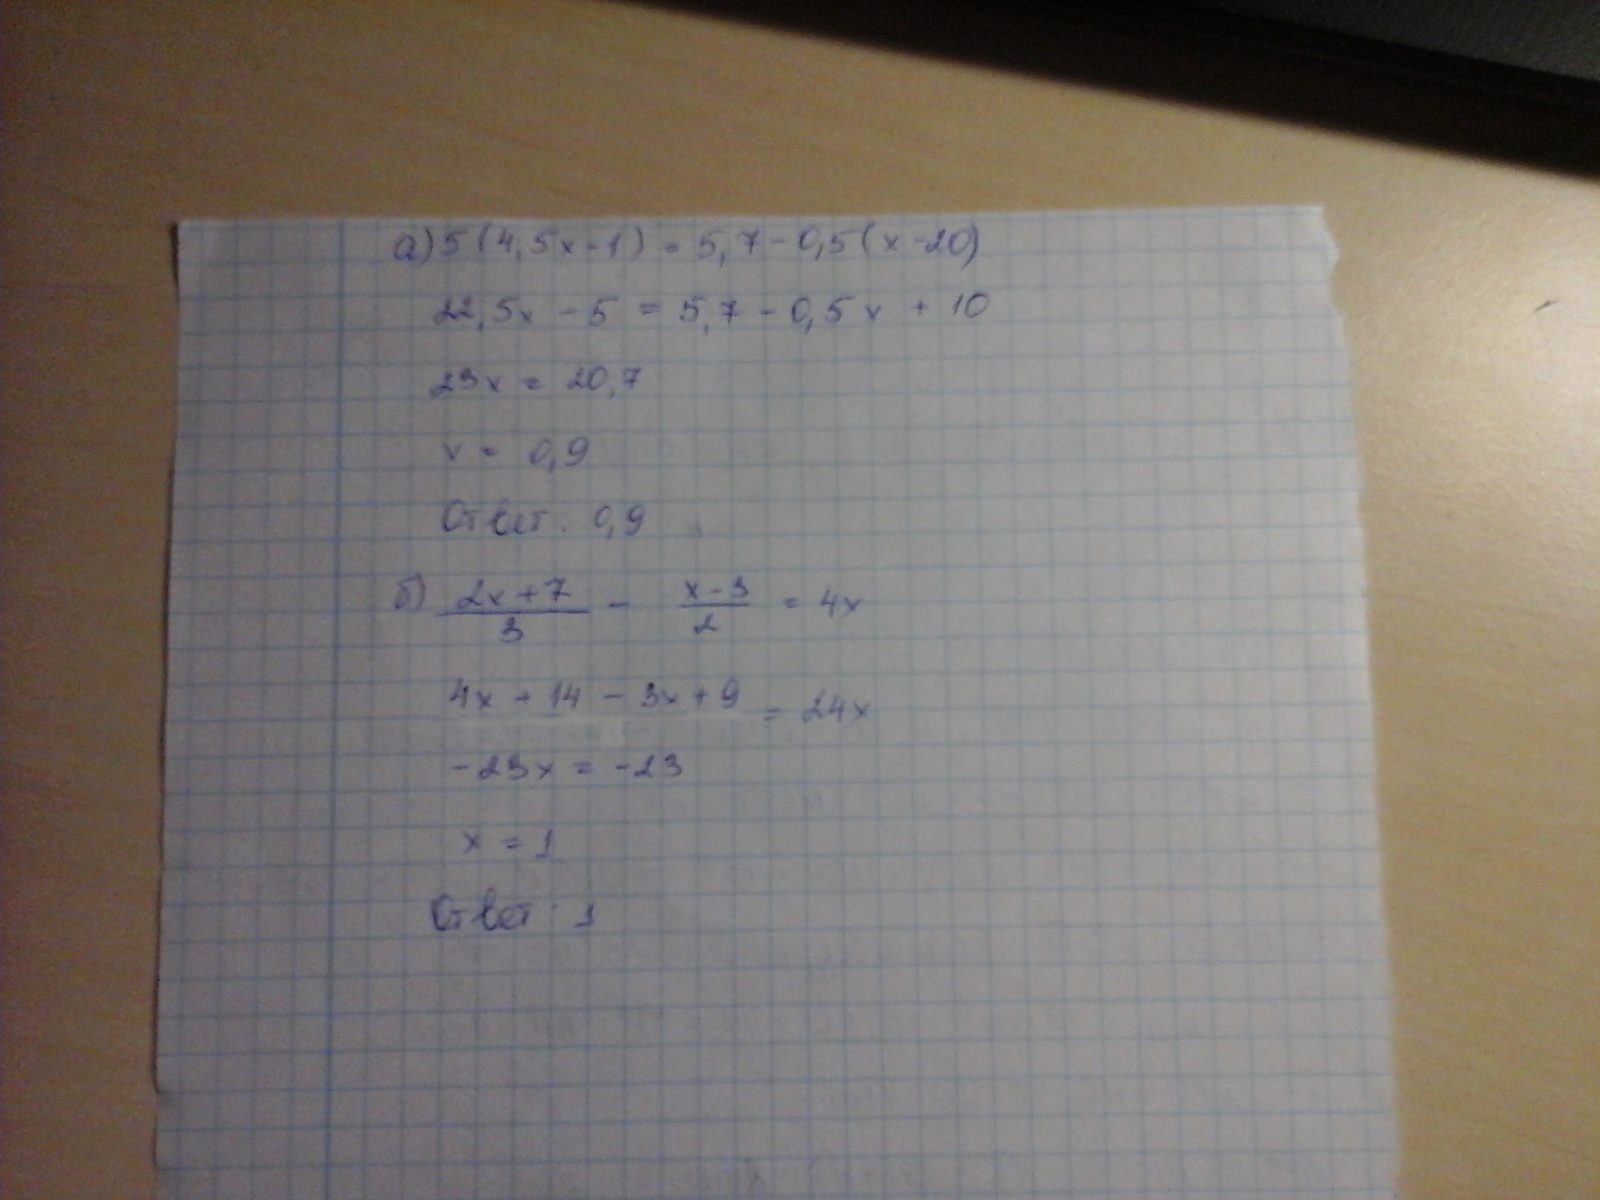 а) 5(4,5x-1) = 5,7-0,5(x-20)
22,5x - 5 = 5,7 - 0,5x + 10
23x = 20,7
x = 0,9
Ответ: 0,9
б) (2x+7)/3 - (x-3)/2 = 4x
4x + 14 - 3x + 9 = 24x
-23x = -23
x = 1
Ответ: 1